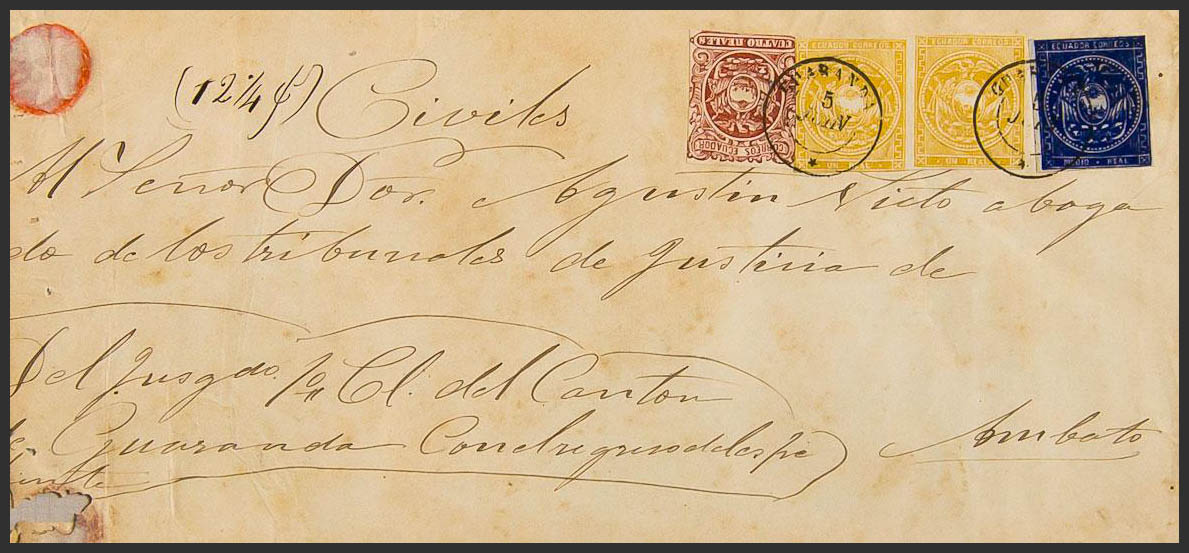 (12¼ ₡) Civiles
Al Señor Dor. Agustin Nieto aboga
do de los tribunales de Justicia de
Del Jusgdo. 1º Cl. del Canton
de Guaranda Con el regreso del espe
Ambato
CUATRO REALES
CORREOS ECUADOR
ECUADOR CORREOS
UN REAL
ECUADOR CORREOS
UN REAL
ECUADOR CORREOS
MEDIO REAL
GUARANDA
5